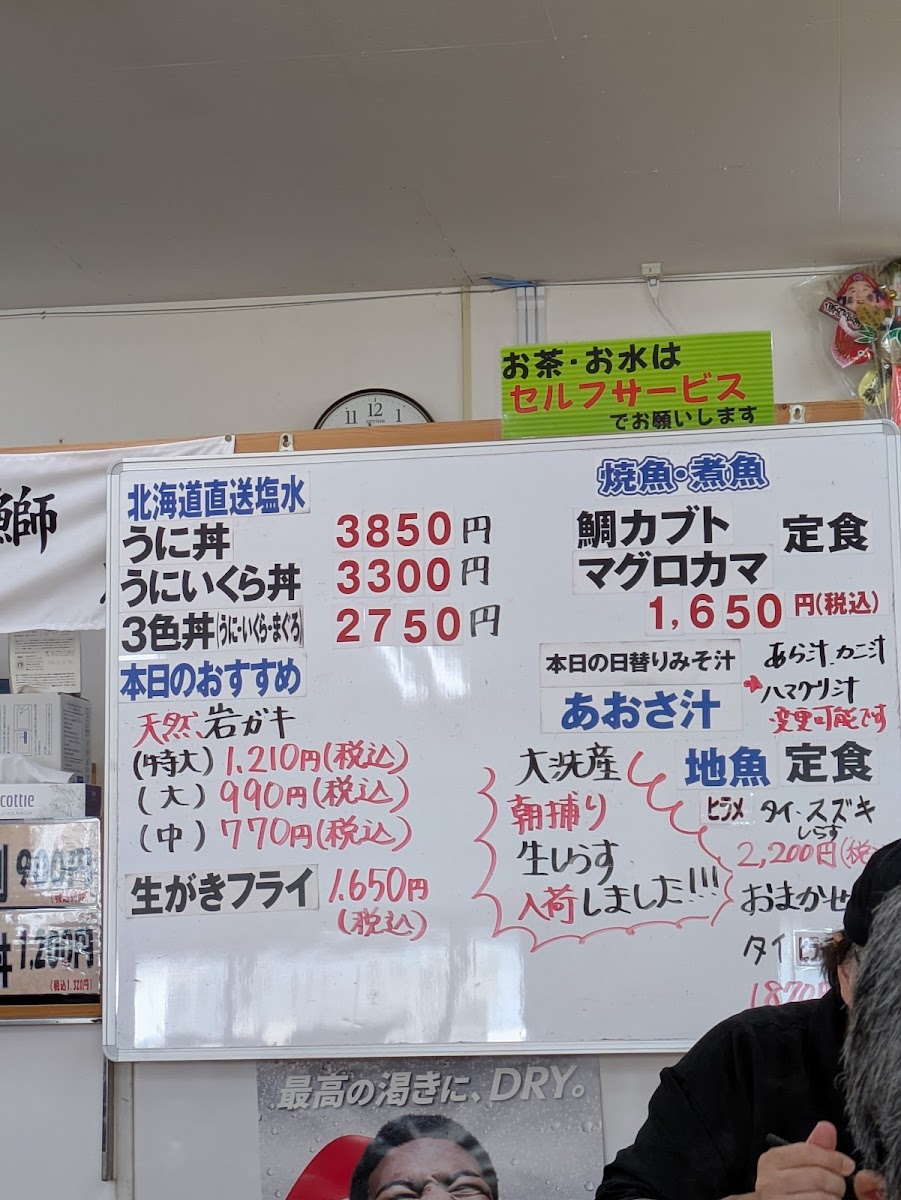 お茶・お水は
セルフサービス
でお願いします
11 12 1
漁師
北海道直送塩水
うに丼 3850円
うにいくら丼 3300円
3色丼(うに・いくら・まぐろ) 2750円
本日のおすすめ
天然、岩ガキ
(特大) 1,210円(税込)
(大) 990円(税込)
(中) 770円(税込)
生がきフライ 1.650円
(税込)
焼魚・煮魚
鯛カブト 定食
マグロカマ
1,650円(税込)
本日の日替りみそ汁
あおさ汁
あら汁、カニ汁
ハマグリ汁
変更可能です
大洗産
朝捕り
生しらす
入荷しました!!!
地魚 定食
ヒラメ タイ・スズキ
しらす
2,200円(税
おまかせ
タイ
1870
cottie
900円
1,200円
(税込1,320円)
最高の渇きに、DRY。